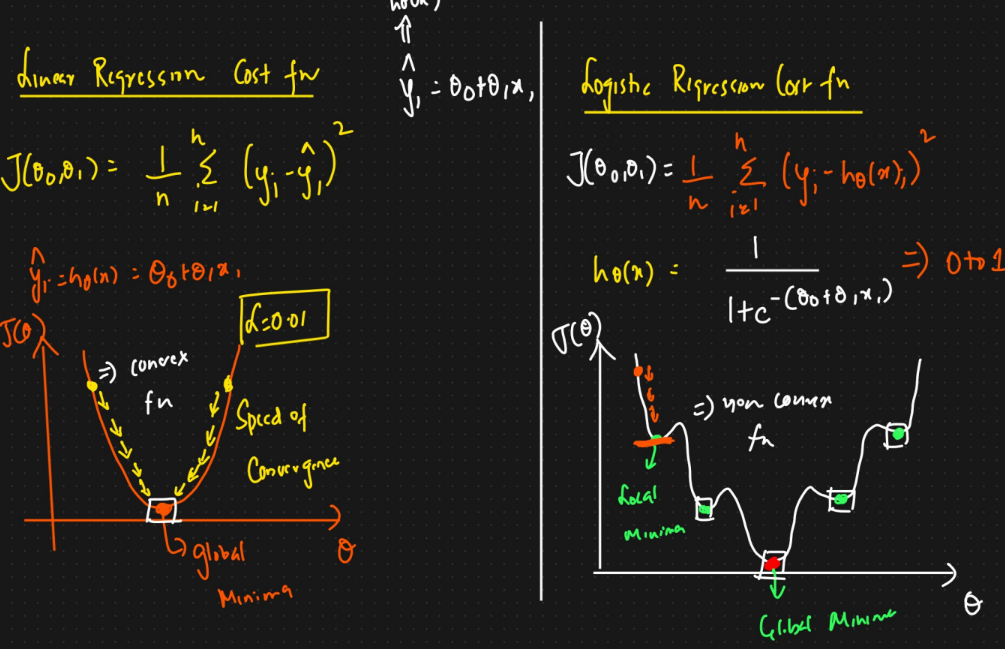 Linear Regression Cost fn
J(θ0,θ1) = 1/n Σ i=1 n (yi - ŷi)²
ŷi = hθ(x) = θ0+θ1x1
α=0.01
J(θ)
=) convex
fn
Speed of
Convergence
global
Minima
θ
⇑
ŷi = θ0+θ1x1
Logistic Regression Cost fn
J(θ0,θ1) = 1/n Σ i=1 n (yi - hθ(x)i)²
hθ(x) = 1/1+e^-(θ0+θ1x1) =) 0 to 1
J(θ)
=) non convex
fn
Local
Minima
Global Minima
θ